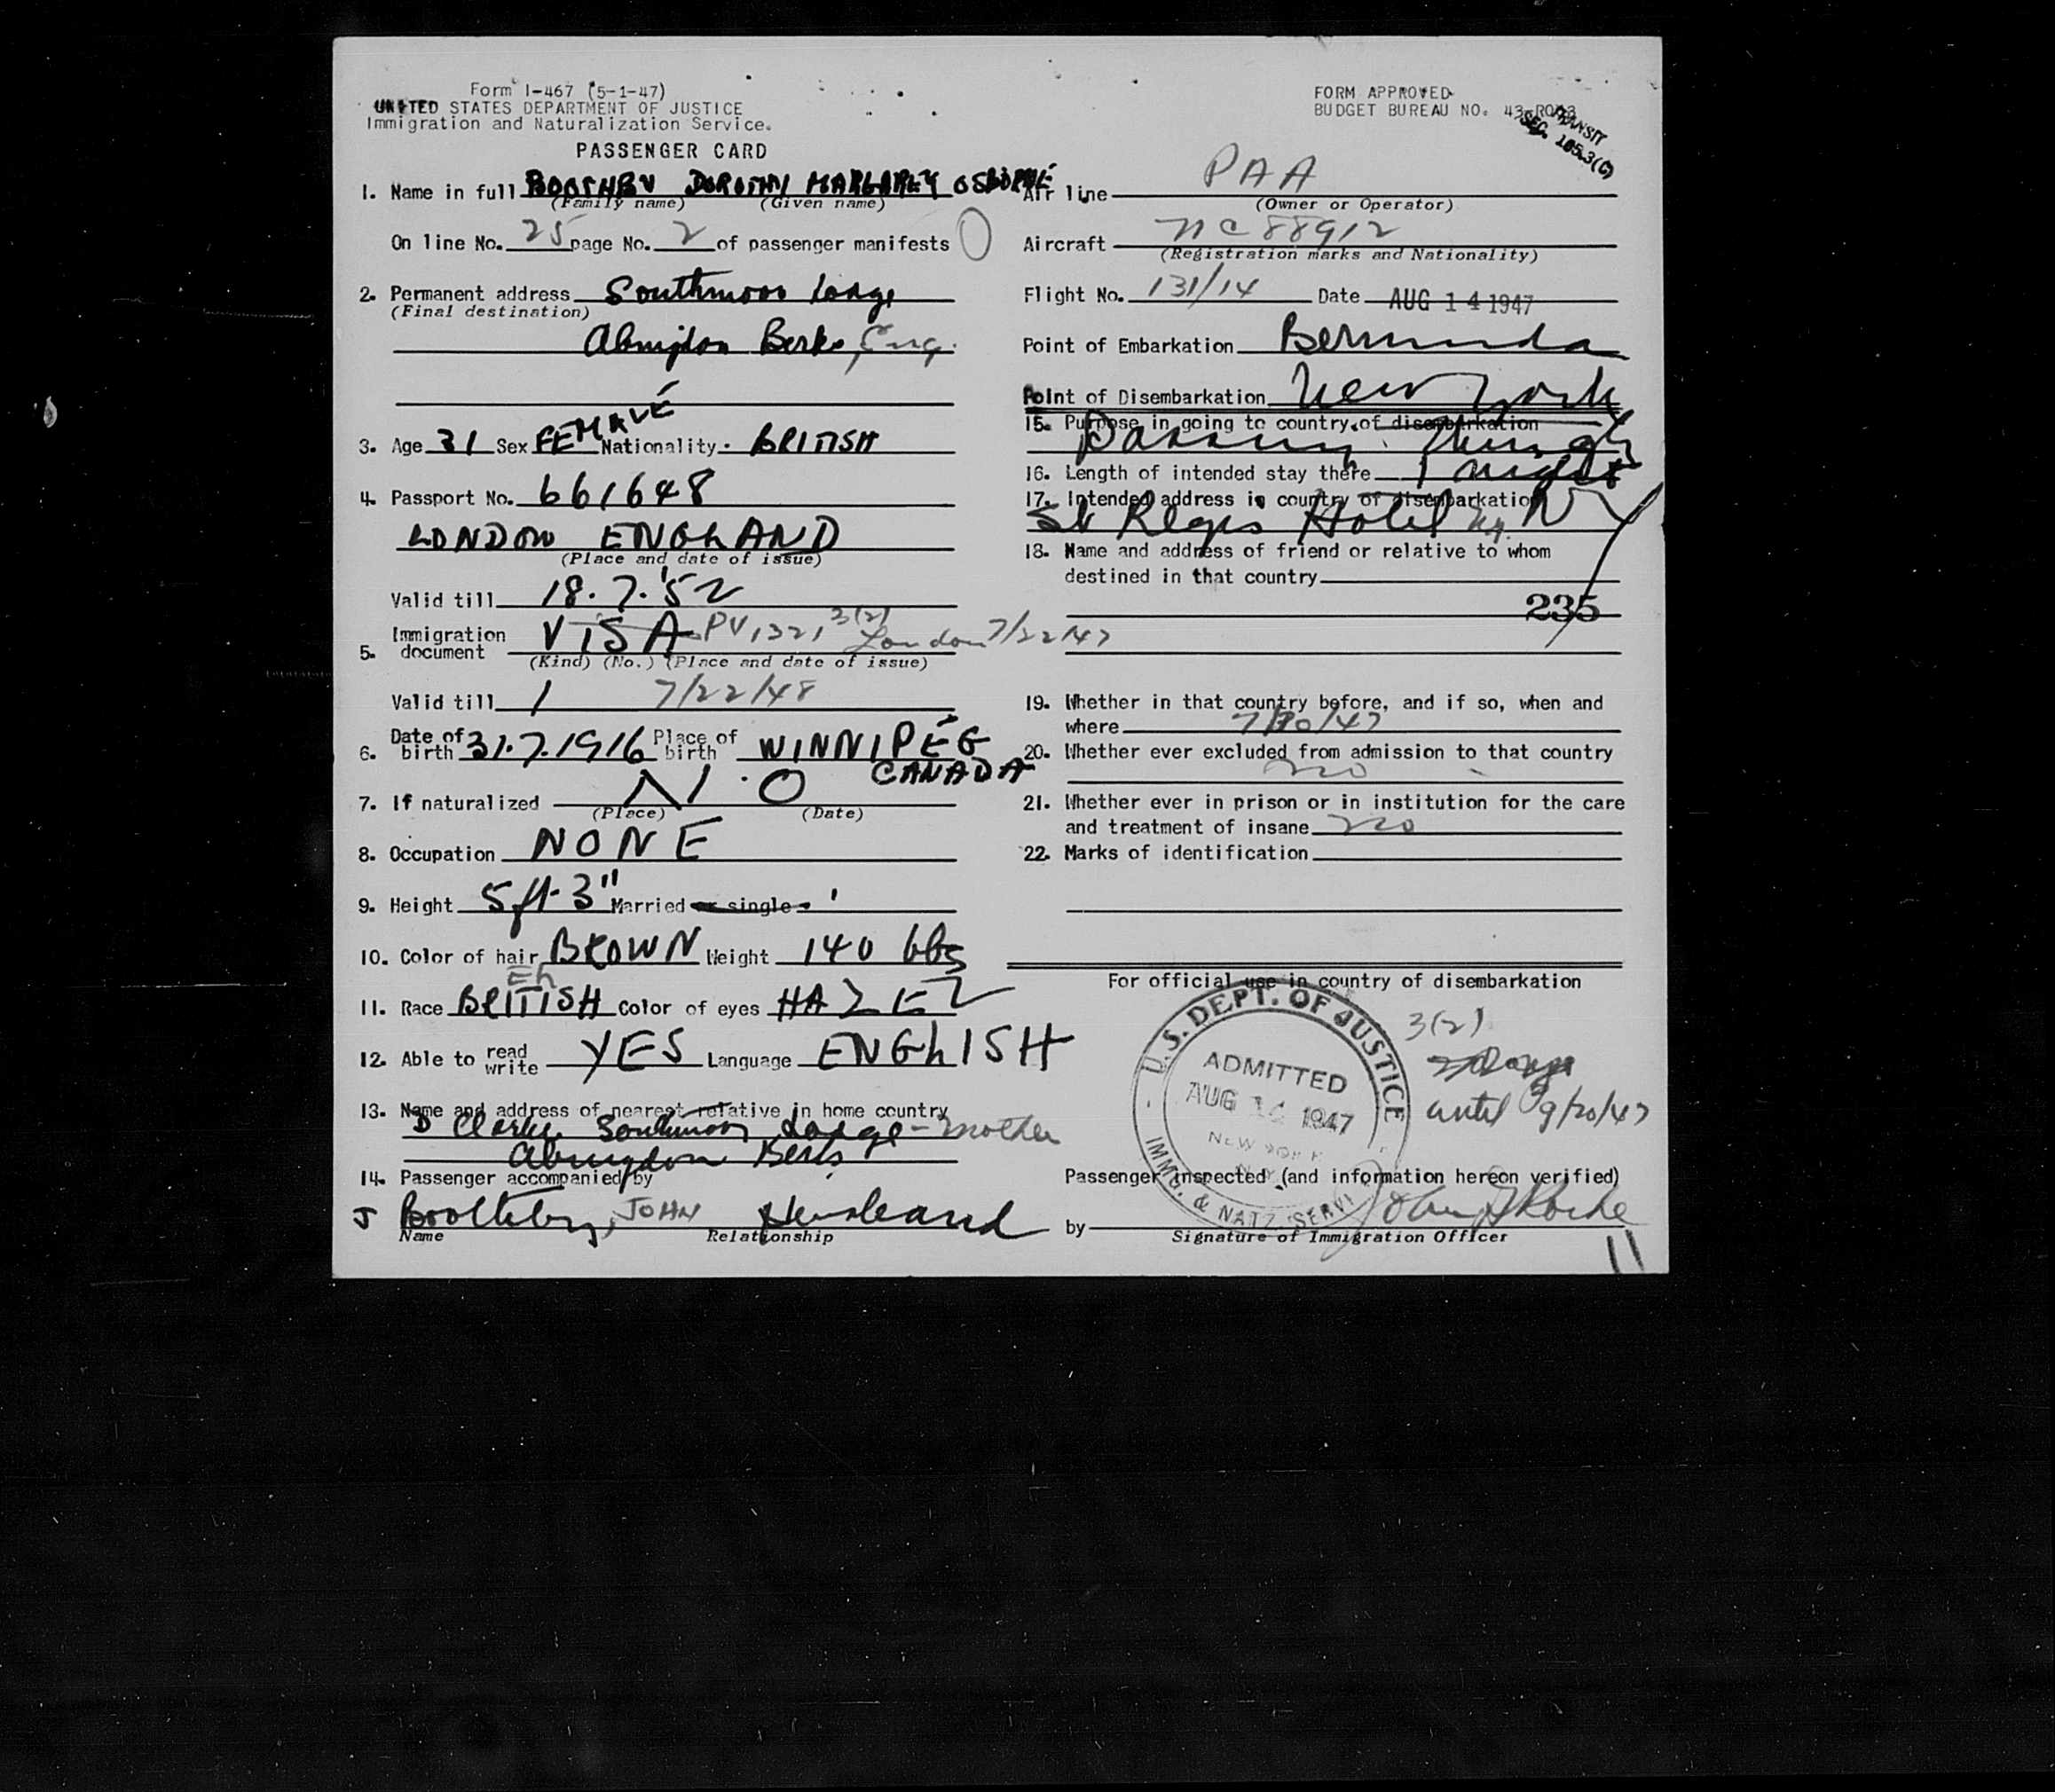 Form I-467 (5-1-47)
UNITED STATES DEPARTMENT OF JUSTICE
Immigration and Naturalization Service.
PASSENGER CARD
1. Name in full BOOTHBY DOROTHY MARGARET OSBORNE
(Family name) (Given name)
On line No. 25 page No. 2 of passenger manifests
2. Permanent address Southmoor Lodge
(Final destination)
Abingdon Berks, Eng.
3. Age 31 Sex FEMALE Nationality BRITISH
4. Passport No. 661648
LONDON ENGLAND
(Place and date of issue)
Valid till 18.7.'52
5. Immigration document VISA PV 1321 3(2) London 7/22/47
(Kind) (No.) (Place and date of issue)
Valid till 7/22/48
6. Date of birth 31.7.1916 Place of birth WINNIPEG
CANADA
7. If naturalized N.O
(Place) (Date)
8. Occupation NONE
9. Height 5 ft. 3" Married or single
10. Color of hair BROWN Weight 140 lbs
Eh
11. Race BRITISH Color of eyes HAZEL
12. Able to read write YES Language ENGLISH
13. Name and address of nearest relative in home country
D Clarke Southmoor Lodge - mother
Abingdon Berks
14. Passenger accompanied by
J Boothby, JOHN Husband
Name Relationship
FORM APPROVED
BUDGET BUREAU NO.
TRANSIT
SEC. 105.3(C)
Air line PAA
(Owner or Operator)
Aircraft NC 88912
(Registration marks and Nationality)
Flight No. 131/14 Date AUG 14 1947
Point of Embarkation Bermuda
Point of Disembarkation New York
15. Purpose in going to country of disembarkation
Passing through
16. Length of intended stay there 1 night
17. Intended address in country of disembarkation
St Regis Hotel Ny. NY
18. Name and address of friend or relative to whom
destined in that country
235
19. Whether in that country before, and if so, when and
where
20. Whether ever excluded from admission to that country
no
21. Whether ever in prison or in institution for the care
and treatment of insane no
22. Marks of identification
For official use in country of disembarkation
U.S. DEPT. OF JUSTICE
ADMITTED
AUG 14 1947
NEW YORK
N.Y.
IMMG. & NATZ. SERV
3(2)
until 9/20/47
Passenger inspected (and information hereon verified)
by
Signature of Immigration Officer
11